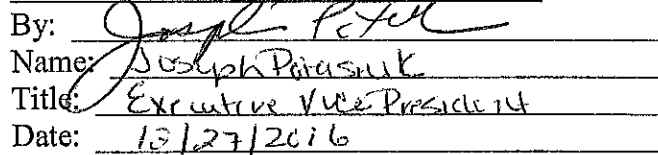 By: Joseph
Name: Joseph Parasiuk
Title: Executive Vice President
Date: /27/2016